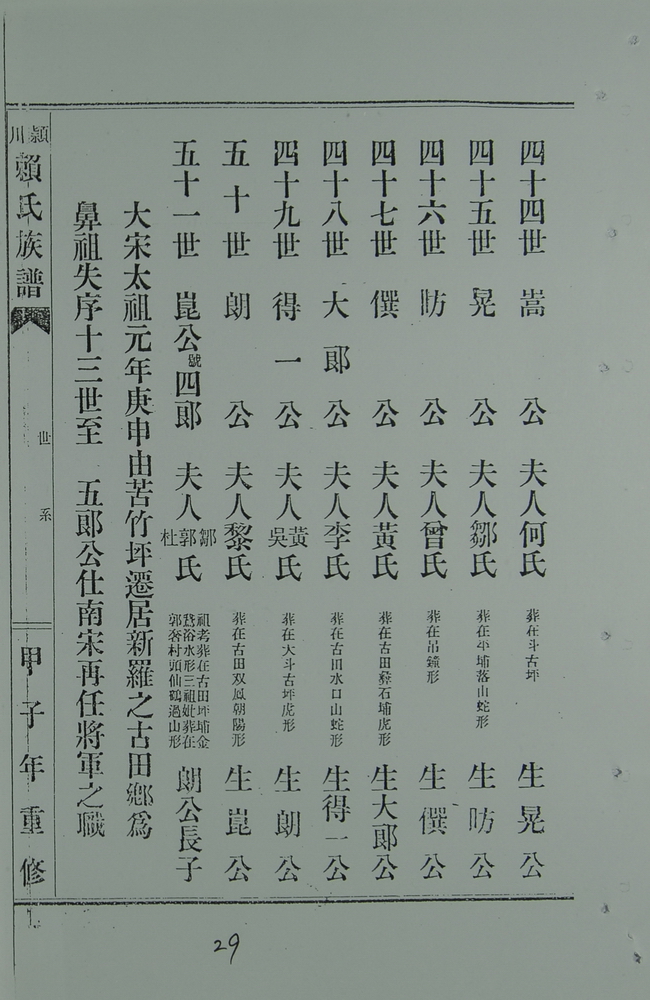 四十四世 嵩 公 夫人何氏 葬在斗古坪 生晃公
四十五世 晃 公 夫人鄒氏 葬在半埔落山蛇形 生昉公
四十六世 昉 公 夫人曾氏 葬在吊鐘形 生僎公
四十七世 僎 公 夫人黃氏 葬在古田彜石埔虎形 生大郞公
四十八世 大郞公 夫人李氏 葬在古田水口山蛇形 生得一公
四十九世 得一公 夫人黃吳氏 葬在大斗古坪虎形 生朗公
五十世 朗 公 夫人黎氏 葬在古田双鳳朝陽形 生崑公
五十一世 崑公號四郞 夫人鄒郭杜氏 祖考葬在古田坪埔金
盆浴水形三祖妣葬在
郭畬村頭仙鶴過山形 朗公長子
大宋太祖元年庚申由苦竹坪遷居新羅之古田鄕爲
鼻祖失序十三世至 五郞公仕南宋再任將軍之職
潁川
賴氏族譜
世系
甲子年重修
29